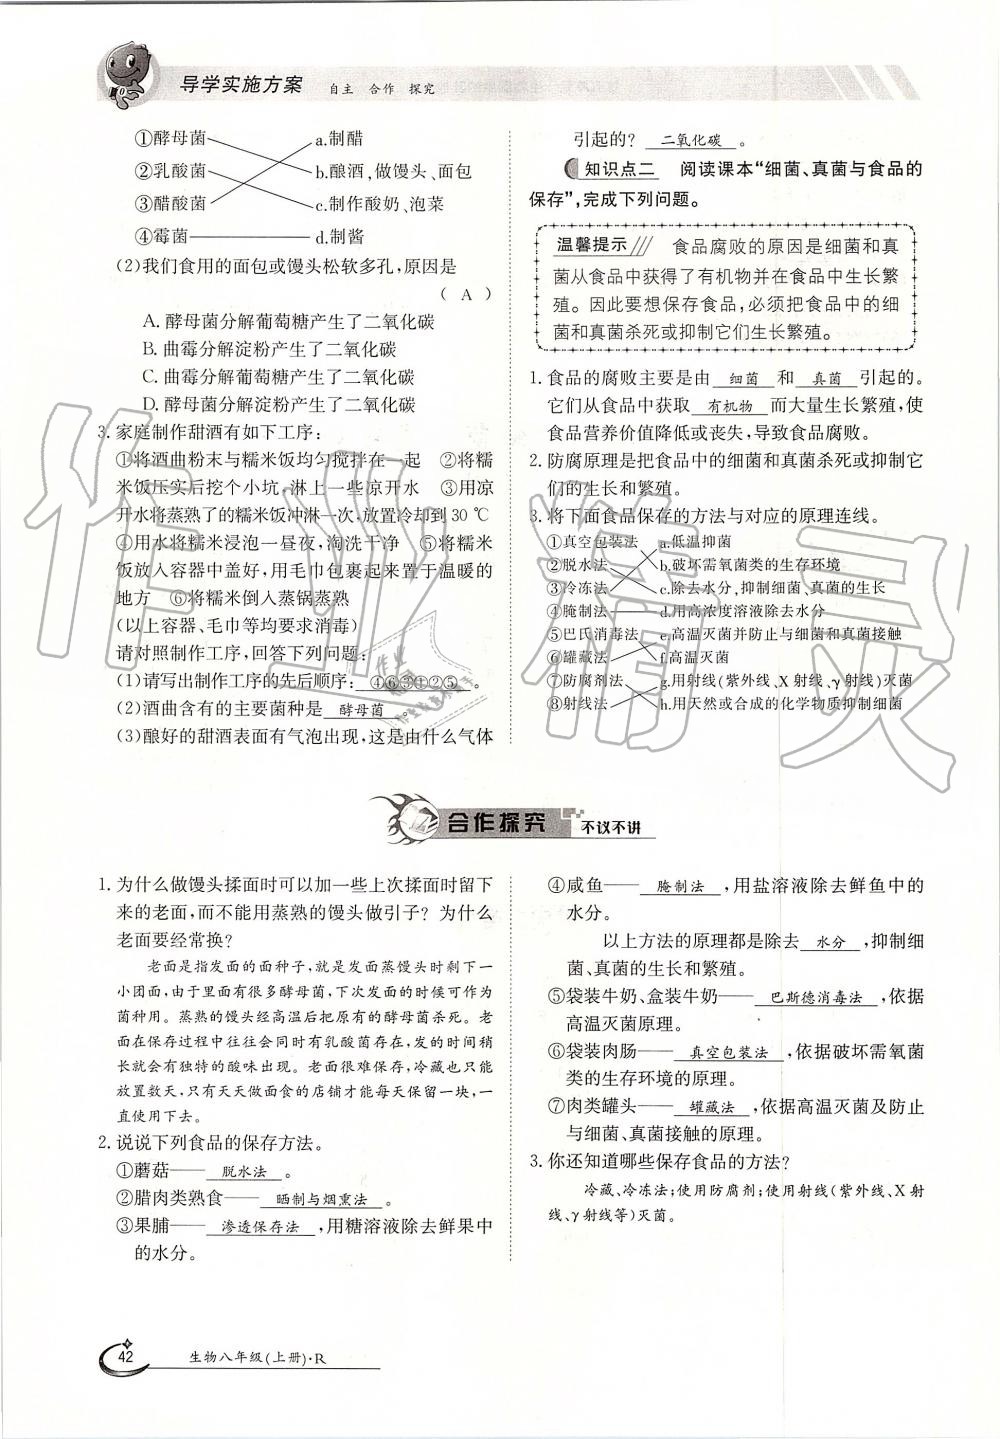 导学实施方案 自主 合作 探究
①酵母菌 a.制醋
②乳酸菌 b.酿酒,做馒头、面包
③醋酸菌 c.制作酸奶、泡菜
④霉菌 d.制酱
(2)我们食用的面包或馒头松软多孔,原因是
( A )
A. 酵母菌分解葡萄糖产生了二氧化碳
B. 曲霉分解淀粉产生了二氧化碳
C. 曲霉分解葡萄糖产生了二氧化碳
D. 酵母菌分解淀粉产生了二氧化碳
3. 家庭制作甜酒有如下工序:
①将酒曲粉末与糯米饭均匀搅拌在一起 ②将糯
米饭压实后挖个小坑,淋上一些凉开水 ③用凉
开水将蒸熟了的糯米饭冲淋一次,放置冷却到30 ℃
④用水将糯米浸泡一昼夜,淘洗干净 ⑤将糯米
饭放入容器中盖好,用毛巾包裹起来置于温暖的
地方 ⑥将糯米倒入蒸锅蒸熟
(以上容器、毛巾等均要求消毒)
请对照制作工序,回答下列问题:
(1)请写出制作工序的先后顺序: ④⑥③①②⑤ 。
(2)酒曲含有的主要菌种是 酵母菌
(3)酿好的甜酒表面有气泡出现,这是由什么气体
引起的? 二氧化碳 。
知识点二 阅读课本“细菌、真菌与食品的
保存”,完成下列问题。
温馨提示 食品腐败的原因是细菌和真
菌从食品中获得了有机物并在食品中生长繁
殖。因此要想保存食品,必须把食品中的细
菌和真菌杀死或抑制它们生长繁殖。
1. 食品的腐败主要是由 细菌 和 真菌 引起的。
它们从食品中获取 有机物 而大量生长繁殖,使
食品营养价值降低或丧失,导致食品腐败。
2. 防腐原理是把食品中的细菌和真菌杀死或抑制它
们的生长和繁殖。
3. 将下面食品保存的方法与对应的原理连线。
①真空包装法 a.低温抑菌
②脱水法 b.破坏需氧菌类的生存环境
③冷冻法 c.除去水分,抑制细菌、真菌的生长
④腌制法 d.用高浓度溶液除去水分
⑤巴氏消毒法 e.高温灭菌并防止与细菌和真菌接触
⑥罐藏法 f.高温灭菌
⑦防腐剂法 g.用射线(紫外线、X射线、γ射线)灭菌
⑧射线法 h.用天然或合成的化学物质抑制细菌
合作探究 不议不讲
1. 为什么做馒头揉面时可以加一些上次揉面时留下
来的老面,而不能用蒸熟的馒头做引子? 为什么
老面要经常换?
老面是指发面的面种子,就是发面蒸馒头时剩下一
小团面,由于里面有很多酵母菌,下次发面的时候可作为
菌种用。蒸熟的馒头经高温后把原有的酵母菌杀死。老
面在保存过程中往往会同时有乳酸菌存在,发的时间稍
长就会有独特的酸味出现。老面很难保存,冷藏也只能
放置数天,只有天天做面食的店铺才能每天保留一块,一
直使用下去。
2. 说说下列食品的保存方法。
①蘑菇—— 脱水法 。
②腊肉类熟食—— 晒制与烟熏法 。
③果脯—— 渗透保存法 ,用糖溶液除去鲜果中
的水分。
④咸鱼—— 腌制法 ,用盐溶液除去鲜鱼中的
水分。
以上方法的原理都是除去 水分 ,抑制细
菌、真菌的生长和繁殖。
⑤袋装牛奶、盒装牛奶—— 巴斯德消毒法 ,依据
高温灭菌原理。
⑥袋装肉肠—— 真空包装法 ,依据破坏需氧菌
类的生存环境的原理。
⑦肉类罐头—— 罐藏法 ,依据高温灭菌及防止
与细菌、真菌接触的原理。
3. 你还知道哪些保存食品的方法?
冷藏、冷冻法;使用防腐剂;使用射线(紫外线、X射
线、γ射线等)灭菌。
42 生物八年级(上册)·R
作业精灵